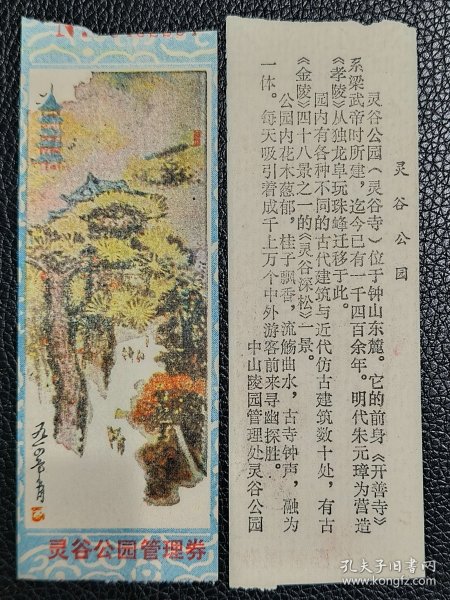 灵谷公园管理券
灵谷公园
灵谷公园(灵谷寺)位于钟山东麓。它的前身《开善寺》
系梁武帝时所建，迄今已有一千四百余年。明代朱元璋为营造
《孝陵》从独龙阜玩珠峰迁移于此。
园内有各种不同的古代建筑与近代仿古建筑数十处，有古
《金陵》四十八景之一的《灵谷深松》一景。
公园内花木葱郁，桂子飘香，流觞曲水，古寺钟声，融为
一体。每天吸引着成千上万个中外游客前来寻幽探胜。
中山陵园管理处灵谷公园
孔夫子旧书网